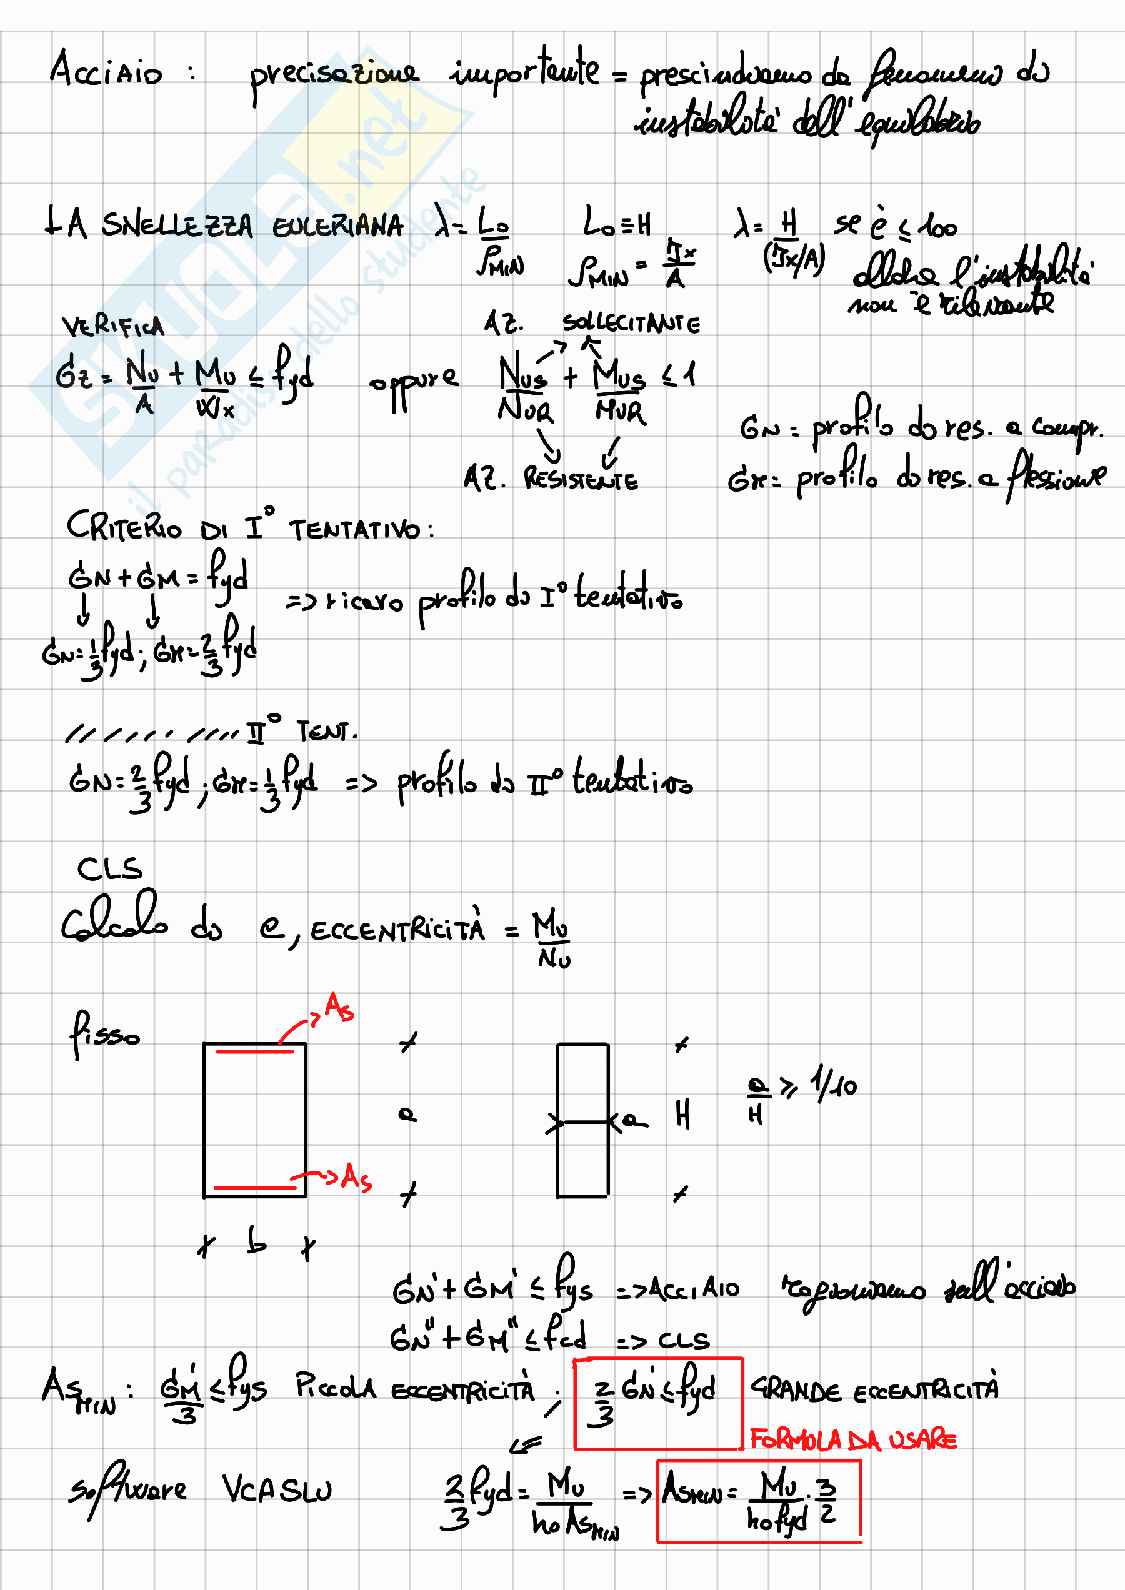 ACCIAIO : precisazione importante = prescindiamo da fenomeno di
instabilità dell'equilibrio
LA SNELLEZZA EULERIANA λ = L0/ρMIN   L0 ≡ H   λ = H/(Jx/A) se è ≤ 100
ρMIN = Jx/A
allora l'instabilità
non è rilevante
VERIFICA
AZ. SOLLECITANTE
σz = Nu/A + Mu/Wx ≤ fyd oppure Nus/NUR + Mus/MUR ≤ 1
σN = profilo di res. a compr.
AZ. RESISTENTE
σM = profilo di res. a flessione
CRITERIO DI I° TENTATIVO:
σN + σM = fyd
=> ricavo profilo di I° tentativo
σN = 1/3 fyd ; σM = 2/3 fyd
II° TENT.
σN = 2/3 fyd ; σM = 1/3 fyd => profilo di II° tentativo
CLS
Calcolo di e, ECCENTRICITÀ = Mu/Nu
fisso
As
a
a
H
a/H ≥ 1/10
As
b
σN' + σM' ≤ fys => ACCIAIO ragioniamo sull'acciaio
σN'' + σM'' ≤ fcd => CLS
AsMIN : σM'/3 ≤ fys PICCOLA ECCENTRICITÀ . 2/3 σN' ≤ fyd GRANDE ECCENTRICITÀ
FORMULA DA USARE
software VCASLU 2/3 fyd = Mu/(h0 AsMIN) => AsMIN = Mu/(h0 fyd) · 3/2
SKUOLA.net
il paradiso dello studente